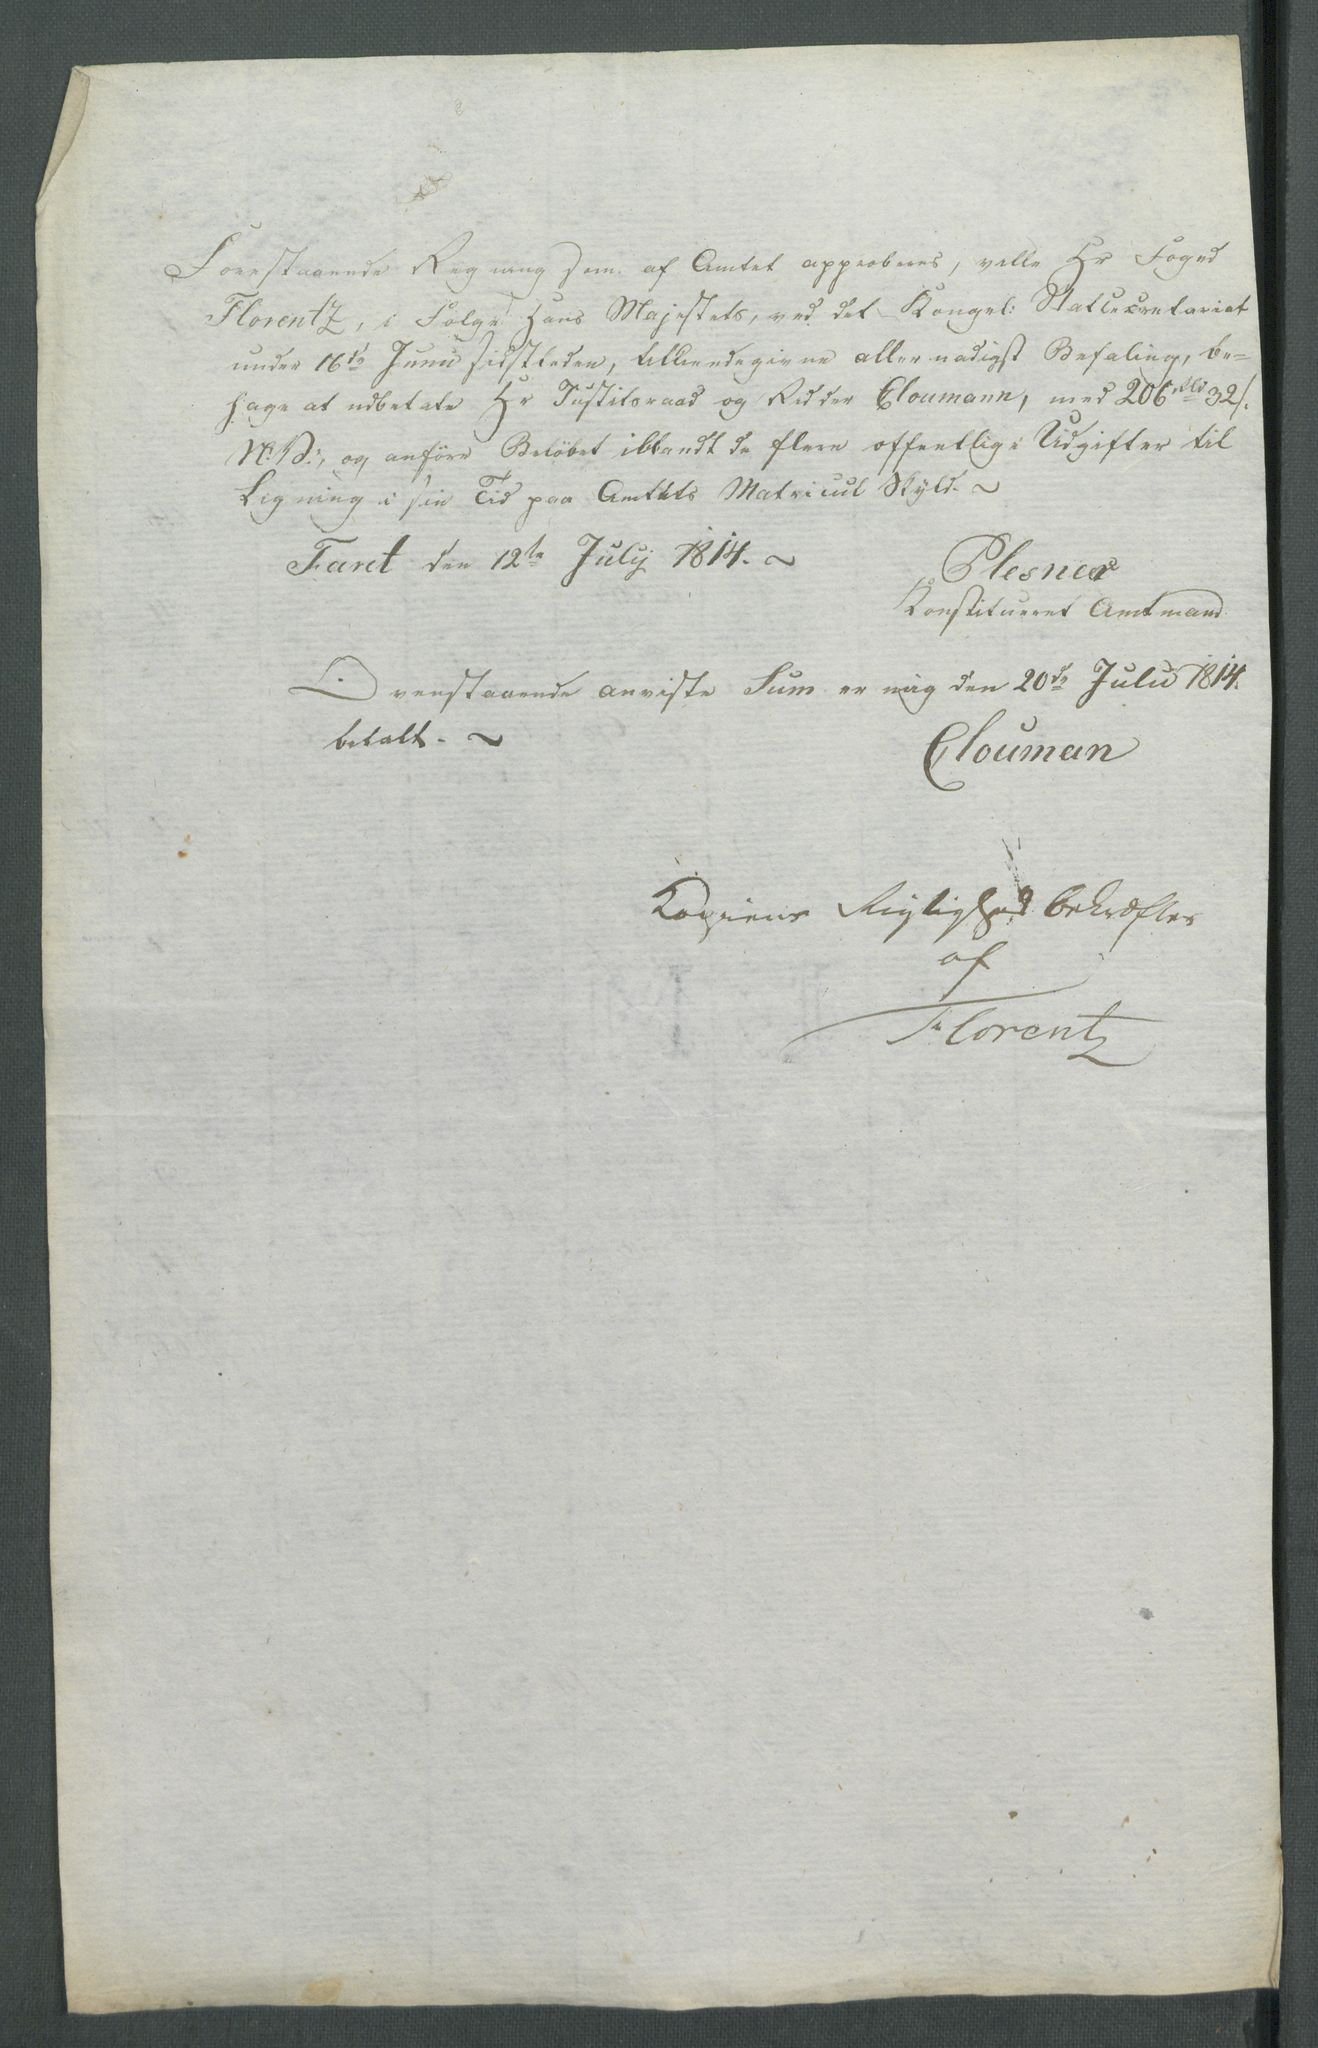 Forestaaende Regning som af Amtet approberes, ville Hr Foged
Florentz, i Følge Hans Majestets, ved det Kongel: Statsecretariat
under 16de Junii sidstleden, tilkiendegivne allernadigst Befaling, be-
hage at udbetale Hr Justitsraad og Ridder Cloumann, med 206 rbd 32 s.
N. V., og anføre Beløbet iblandt de flere offentlige Udgifter til
Ligning i sin Tid paa Amtets Matricul Skyld. ~
Faret den 12te July 1814. ~
Plesner
Konstitueret Amtmand
Ovenstaaende anviste Sum er mig den 20de Julii 1814.
betalt. ~
Clouman
Kopiens Rigtighed bekræftes
af
Florentz